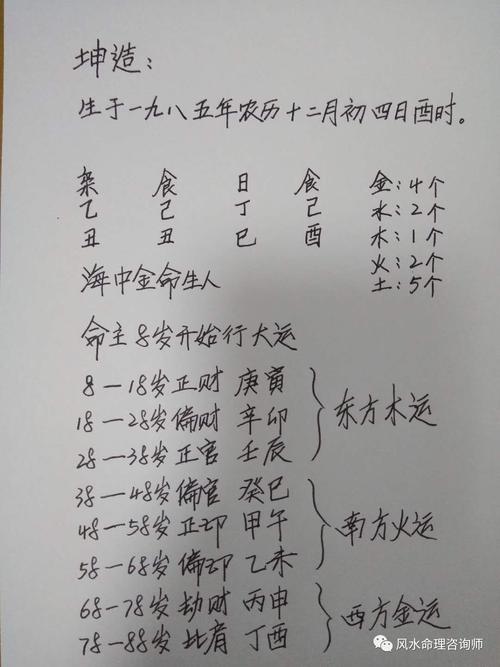 坤造：
生于一九八五年农历十二月初四日酉时。
枭 食 日 食 金：4个
乙 己 丁 己 水：2个
丑 丑 巳 酉 木：1个
火：2个
海中金命生人 土：5个
命主8岁开始行大运
8—18岁正财 庚寅
18—28岁偏财 辛卯 东方木运
28—38岁正官 壬辰
38—48岁偏官 癸巳
48—58岁正印 甲午 南方火运
58—68岁偏印 乙未
68—78岁劫财 丙申 西方金运
78—88岁比肩 丁酉
风水命理咨询师